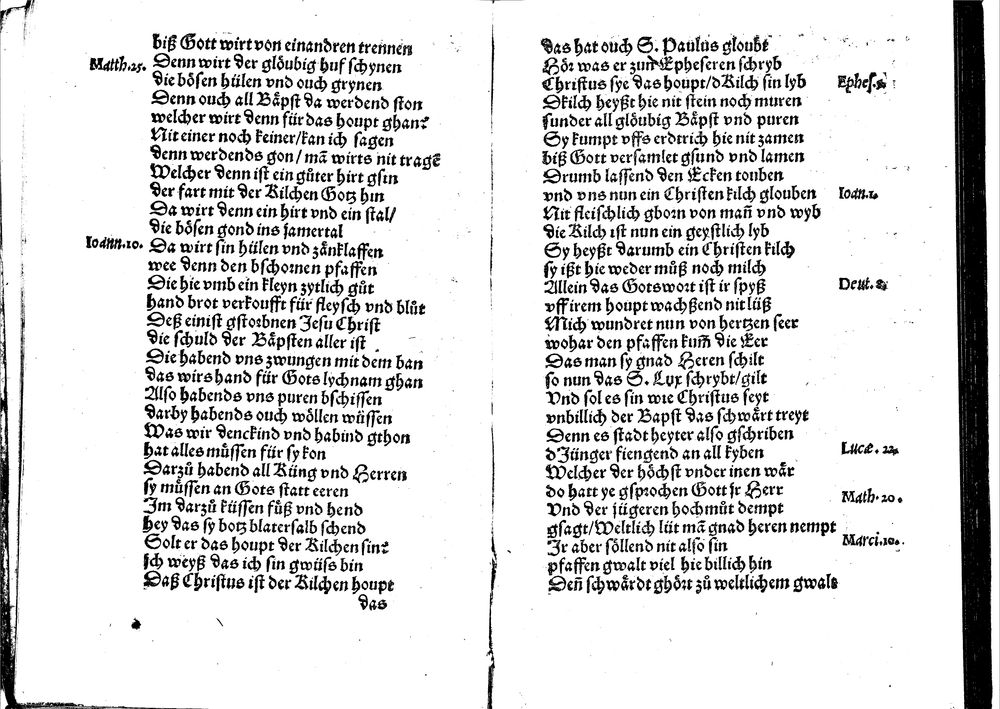 biß Gott wirt von einandren trennen
Matth.25. Denn wirt der glöubig huf schynen
die bösen hülen vnd ouch grynen
Denn ouch all Bäpst da werdend ston
welcher wirt denn für das houpt ghan?
Nit einer noch keiner/kan ich sagen
denn werdends gon/mā wirts nit tragē
Welcher denn ist ein gůter hirt gsin
der fart mit der Kilchen Gotz hin
Da wirt denn ein hirt vnd ein stal/
die bösen gond ins jamertal
Ioann.10. Da wirt sin hülen vnd zänklaffen
wee denn den bschornen pfaffen
Die hie vmb ein kleyn zytlich gůt
hand brot verkoufft für fleysch vnd blůt
Deß einist gstorbnen Jesu Christ
die schuld der Bäpsten aller ist
Die habend vns zwungen mit dem ban
das wirs hand für Gots lychnam ghan
Also habends vns puren bschissen
darby habends ouch wöllen wüssen
Was wir denckind vnd habind gthon
hat alles müssen für sy kon
Darzů habend all Küng vnd Herren
sy müssen an Gots statt eeren
Im darzů küssen füß vnd hend
hey das sy botz blatersalb schend
Solt er das houpt der Kilchen sin?
Ich weyß das ich sin gwüss bin
Daß Christus ist der Kilchen houpt
das
das hat ouch S. Paulus gloubt
Hör was er zun Epheseren schryb
Christus sye das houpt/dKilch sin lyb Ephes.
Dkilch heyßt hie nit stein noch muren
sunder all glöubig Bäpst vnd puren
Sy kumpt vffs erdtrich hie nit zamen
biß Gott versamlet gsund vnd lamen
Drumb lassend den Ecken touben
vnd vns nun ein Christen kilch glouben Ioan.1.
Nit fleischlich gborn von mañ vnd wyb
die Kilch ist nun ein geystlich lyb
Sy heyßt darumb ein Christen kilch
sy ißt hie weder můß noch milch
Allein das Gotswort ist ir spyß Deut.8.
vff irem houpt wachßend nit lüß
Mich wundret nun von hertzen seer
wohar den pfaffen kum̄ die Eer
Das man sy gnad Heren schilt
so nun das S. Lux schrybt/gilt
Vnd sol es sin wie Christus seyt
vnbillich der Bapst das schwärt treyt
Denn es stadt heyter also gschriben
dJünger fiengend an all kyben Lucæ.22.
Welcher der höchst vnder inen wär
do hatt ye gsprochen Gott jr Herr Math.20.
Vnd der jügeren hochmůt dempt
gsagt/Weltlich lüt mā gnad heren nempt
Ir aber söllend nit also sin Marci.10.
pfaffen gwalt viel hie billich hin
Deñ schwärdt ghört zů weltlichem gwalt